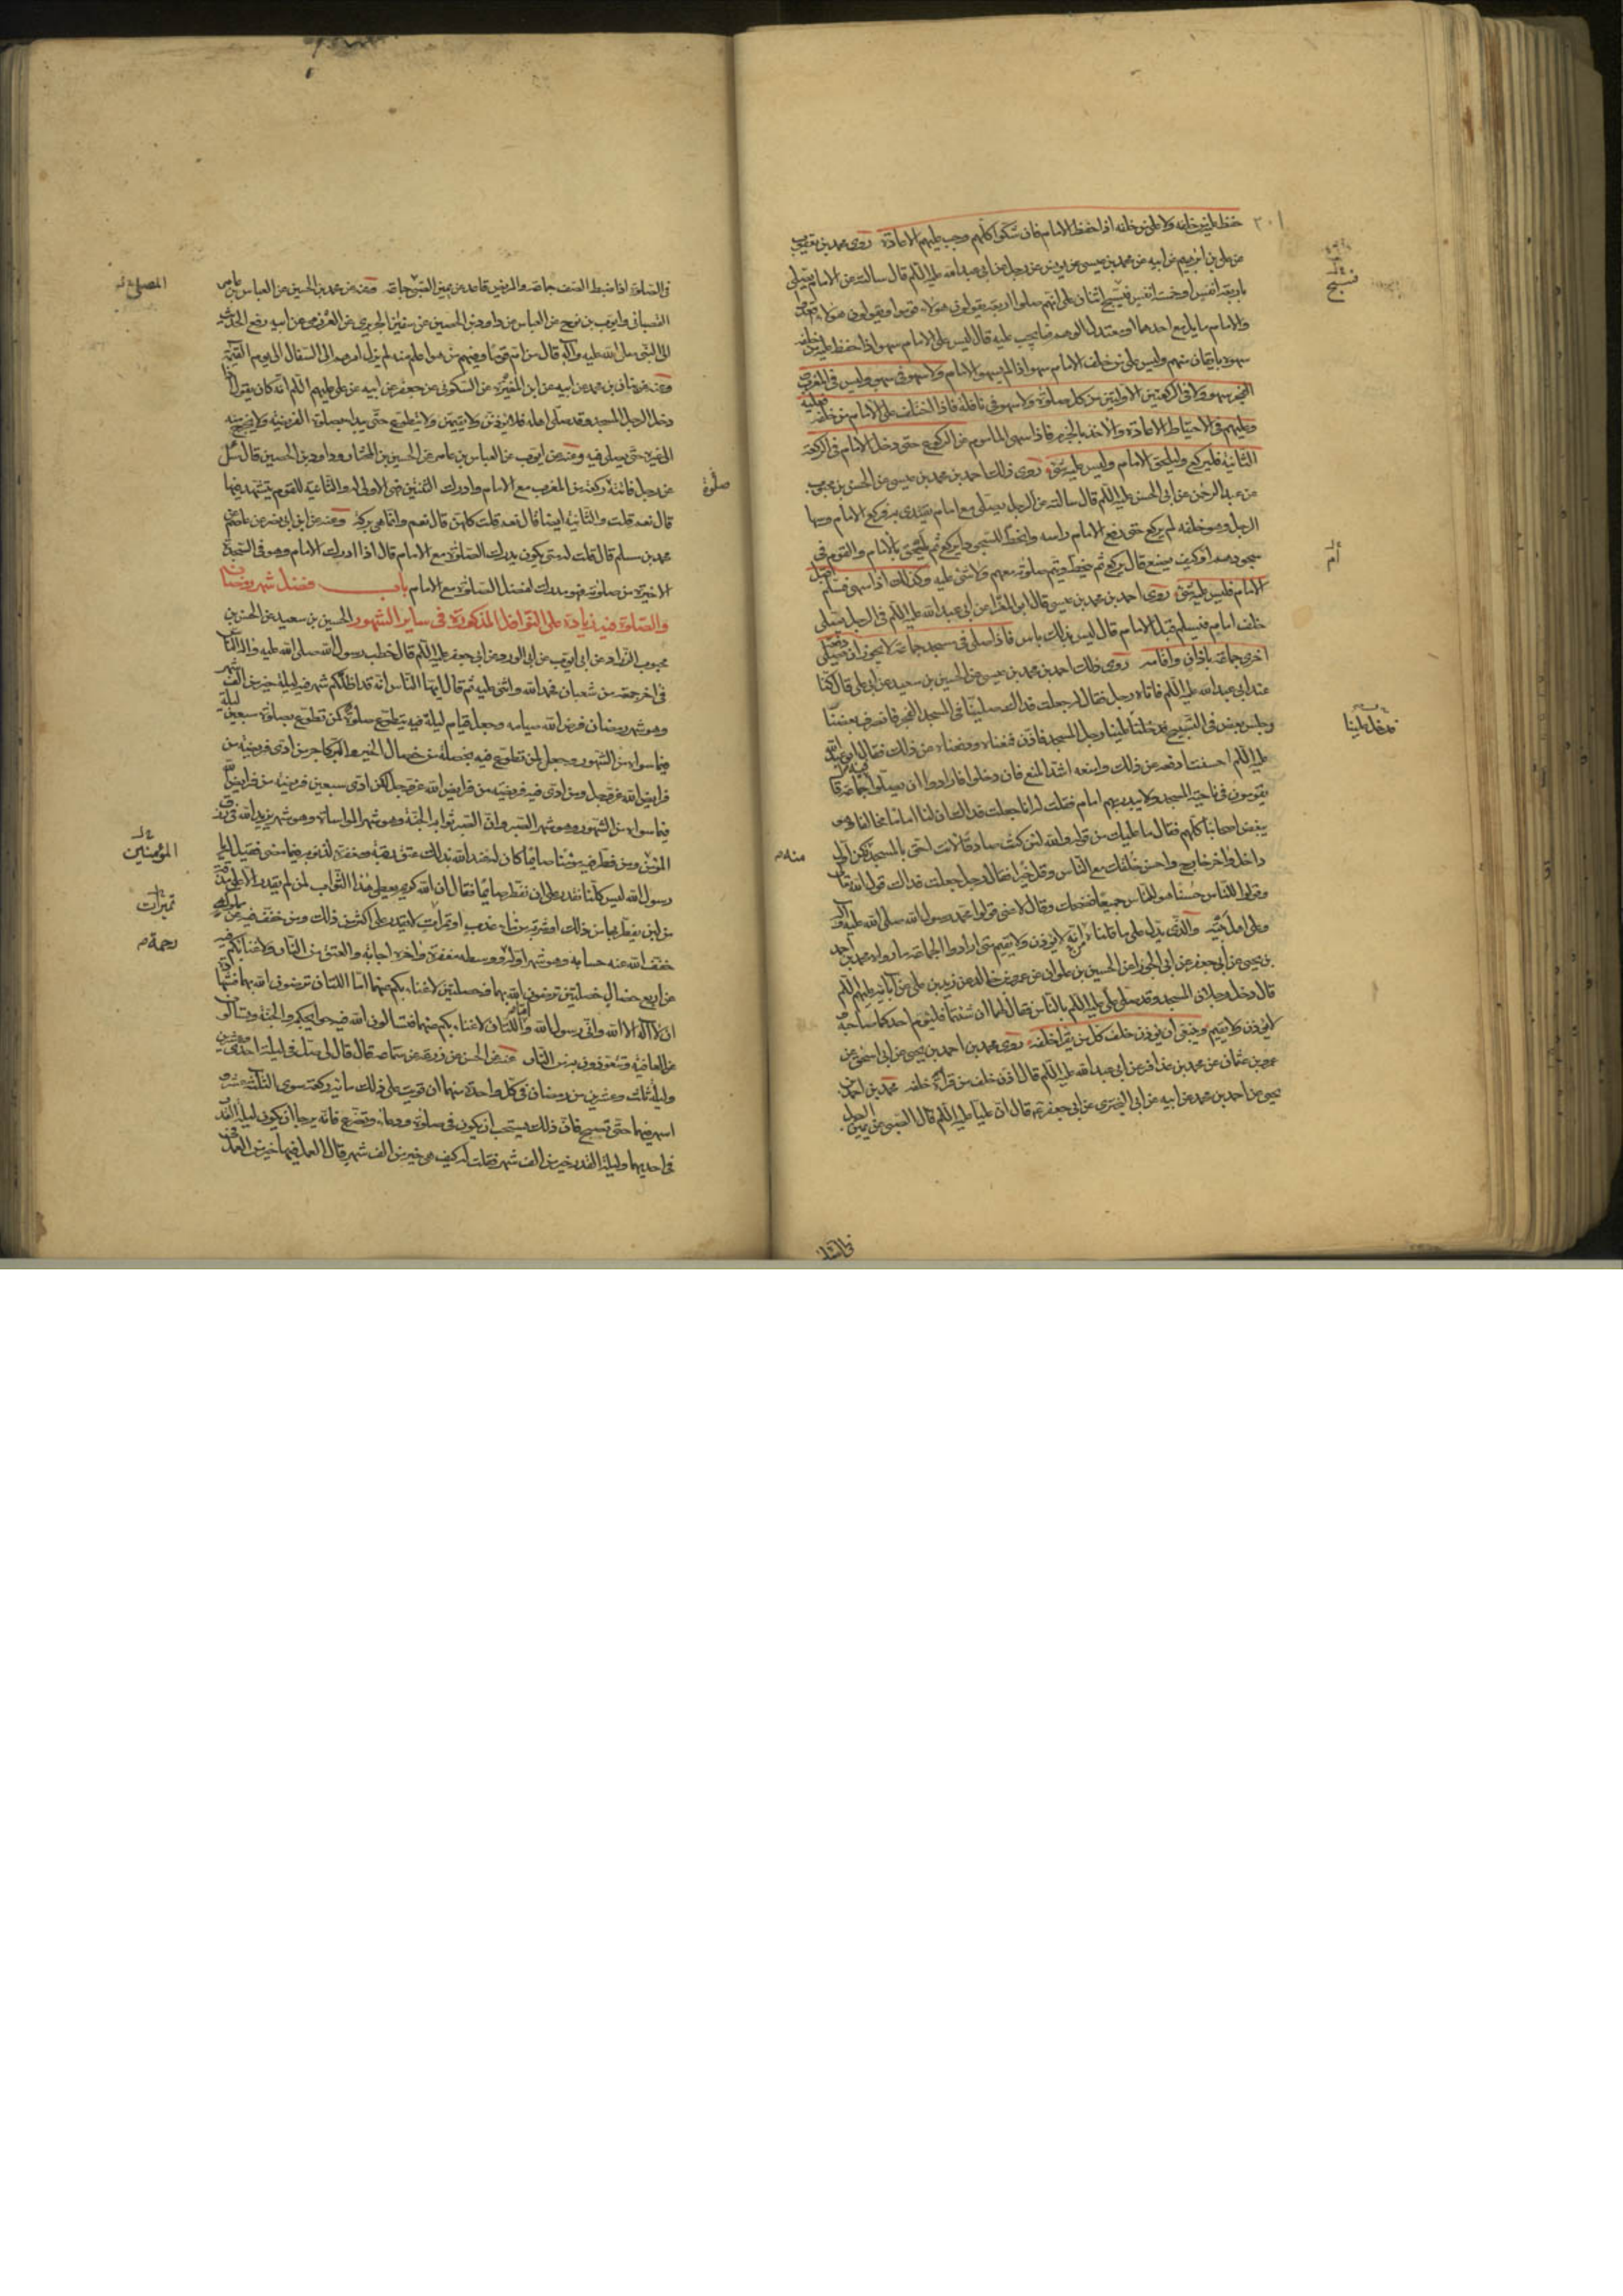 حفظ علي من خلفه ولا على من خلفه اذا حفظ الامام فان شكوا كلهم وجب عليهم الاعادة روى محمد بن يعقوب
عن علي بن ابرهيم عن ابيه عن محمد بن عيسى عن يونس عن رجل عن ابي عبد الله عليه السلم قال سالته عن الامام يصلي
باربعة انفس او خمسة انفس فيسبح اثنان على انهم صلوا اربعة يقولون هؤلاء قوموا ويقولون هؤلاء اقعدوا
والامام مايل مع احدهما او معتدل الوهم فما يجب عليه قال ليس على الامام سهو اذا حفظ عليه من خلفه
سهوه بايقان منهم وليس على من خلف الامام سهو اذا لم يسهو الامام ولا سهو في سهو وليس في المغرب
الفجر سهو ولا في الركعتين الاولتين من كل صلوة ولا سهو في نافلة فاذا اختلف على الامام من خلفه فعليه
وعليهم في الاحتياط الاعادة والاخذ بالجزم فاذا سهى الماموم عن الركوع حتى دخل الامام في الركعة
الثانية فليركع وليلحق الامام وليس عليه شئ روى ذلك احمد بن محمد بن عيسى عن الحسن بن محبوب
عن عبد الرحمن عن ابي الحسن عليه السلم قال سالته عن الرجل يصلي مع امام يقتدي به فركع الامام وسها
الرجل وهو خلفه لم يركع حتى رفع الامام راسه وانحط للسجود ايركع ثم يلحق بالامام والقوم في
سجودهم او كيف يصنع قال يركع ثم ينحط ويتم صلوته معهم ولا شئ عليه وكذلك اذا سهى فسلم قبل
الامام فليس عليه شئ روى احمد بن محمد بن عيسى قال ابي المغرا عن ابي عبد الله عليه السلم في الرجل يصلي
خلف امام فيسلم قبل الامام قال ليس بذلك باس فاذا صلى في مسجد جماعة لا يجوز ان يصلي دفعة
اخرى جماعة باذان واقامة روى ذلك احمد بن محمد بن عيسى عن الحسين بن سعيد عن ابي علي قال كنا
عند ابي عبد الله عليه السلم فاتاه رجل فقال له جعلت فداك صلينا في المسجد الفجر فانصرف بعضنا
وجلس بعض في التسبيح فدخلنا علينا رجل المسجد فاذن فمنعناه ودفعناه عن ذلك فقال ابو عبد الله
عليه السلم احسنت ادفعه عن ذلك وامنعه اشد المنع فان دخلوا فارادوا ان يصلوا فيه جماعة قال
يقومون في ناحية المسجد ولا يبدر بهم امام فقلت له انا جعلت فداك ان لنا اماما مخالفا وهو
يبغض اصحابنا كلهم فقال ما عليك من قوله والله لئن كنت صادقا لانت احق بالمسجد منه فكن اول
داخل واخر خارج واحسن خلقك مع الناس وقل خيرا فقال رجل جعلت فداك قول الله تعالى
وقولوا للناس حسنا هو للناس جميعا فضحك وقال لا عنى قولوا محمد رسول الله صلى الله عليه وآله
وعلى اهل بيته والذي يدل على ما قلناه من انه لا يؤذن ولا يقيم متى ارادوا الجماعة ما رواه محمد بن احمد
بن يحيى عن ابي جعفر عن ابي الجوزا عن الحسين بن علوان عن عمرو بن خالد عن زيد بن علي عن آبائه عليهم السلم
قال دخل رجلان المسجد وقد صلى علي عليه السلم بالناس فقال لهما ان شئتما فليؤم احدكما صاحبه
لا يؤذن ولا يقيم وينبغي ان يؤذن خلف كل من يقرا خلفه روى محمد بن احمد بن يحيى عن ابي اسحق عن
عمرو بن عثمان عن محمد بن عذافر عن ابي عبد الله عليه السلم قال اذن خلف من قرأت خلفه محمد بن احمد بن
يحيى عن احمد بن محمد عن ابيه عن ابي البختري عن ابي جعفر قال ان عليا عليه السلم قال الصبي عن يمين الرجل
فسبح
أم
فدخل علينا
منه م
في الصلوة
في الصلوة اذا ضبط الصف جماعة والمريض قاعد عن يمين الصبي جماعة عنه عن محمد بن الحسين عن العباس بن عامر
القصباني وايوب بن نوح عن العباس عن داود بن الحصين عن سفين الجريري عن العرزمي عن ابيه رفع الحديث
الى النبي صلى الله عليه وآله قال من ام قوما وفيهم من هو اعلم منه لم يزل امرهم الى السفال الى يوم القيمة
وعنه عن بنان بن محمد عن ابيه عن ابن المغيرة عن السكوني عن جعفر عن ابيه عن علي عليهم السلم انه كان يقول اذا
دخل الرجل المسجد وقد صلى اهله فلا يؤذنن ولا يقيمن ولا يتطوع حتى يبدا بصلوة الفريضة ولا يخرج منه
الى غيره حتى يصلي فيه وعنه عن ايوب عن العباس بن عامر عن الحسين بن المختار وداود بن الحصين قال سئل
عن رجل فاتته ركعة من المغرب مع الامام وادرك الثنتين فهي الاولى له والثانية للقوم يتشهد فيها
قال نعم قلت والثانية ايضا قال نعم قلت كلهن قال نعم وانما هي بركة وعنه عن ابن ابي نصر عن عاصم عن
محمد بن مسلم قال قلت له متى يكون يدرك الصلوة مع الامام قال اذا ادرك الامام وهو في السجدة
الاخيرة من صلوته فهو مدرك لفضل الصلوة مع الامام باب فضل شهر رمضان
والصلوة فيه زيادة على النوافل المذكورة في ساير الشهور الحسين بن سعيد عن الحسن بن
محبوب الزراد عن ابي ايوب عن ابي الورد عن ابي جعفر عليه السلم قال خطب رسول الله صلى الله عليه واله الناس
في اخر جمعة من شعبان فحمد الله واثنى عليه ثم قال ايها الناس انه قد اظلكم شهر فيه ليلة خير من الف شهر
وهو شهر رمضان فرض الله صيامه وجعل قيام ليلة فيه يتطوع صلوة كمن تطوع بصلوة سبعين ليلة
فيما سواه من الشهور وجعل لمن تطوع فيه بخصلة من خصال الخير والبر كاجر من ادى فريضة من
فرايض الله عز وجل ومن ادى فيه فريضة من فرايض الله عز وجل كان كمن ادى سبعين فريضة من فرايض الله
فيما سواه من الشهور وهو شهر الصبر وان الصبر ثوابه الجنة وهو شهر المواساة وهو شهر يزيد الله في رزق
المؤمن ومن فطر فيه مؤمنا صايما كان له عند الله بذلك عتق رقبة ومغفرة لذنوبه فيما مضى فقيل له يا
رسول الله ليس كلنا نقدر على ان نفطر صايما فقال ان الله كريم يعطي هذا الثواب لمن لم يقدر الا على مذقة
من لبن يفطر بها من ذلك او شربة من ماء عذب او تمرات لا يقدر على اكثر من ذلك ومن خفف فيه عن مملوكه
خفف الله عنه حسابه وهو شهر اوله ووسطه مغفرة واخره اجابة والعتق من النار ولا غنا بكم فيه
عن اربع خصال خصلتين ترضون الله بهما وخصلتين لا غناء بكم عنهما اما اللتان ترضون الله بهما فشهادة
ان لا اله الا الله واني رسول الله واما اللتان لا غناء بكم عنهما فتسالون الله فيه حوايجكم والجنة وتسالون
الله العافية وتتعوذون به من النار عنه عن الحسن عن زرعة عن سماعة قال قال لي صل في ليلة احدى وعشرين
وليلة ثلث وعشرين من رمضان في كل واحدة منهما ان قويت على ذلك ماية ركعة سوى الثلث عشرة
اسهر فيهما حتى تصبح فان ذلك يستحب ان يكون في صلوة ودعاء وتضرع فانه يرجا ان يكون ليلة القدر
في احديهما وليلة القدر خير من الف شهر فقلت له كيف هي خير من الف شهر قال العمل فيها خير من العمل في
المصلى
صلوة
المؤمنين
تميرات
رحمة م